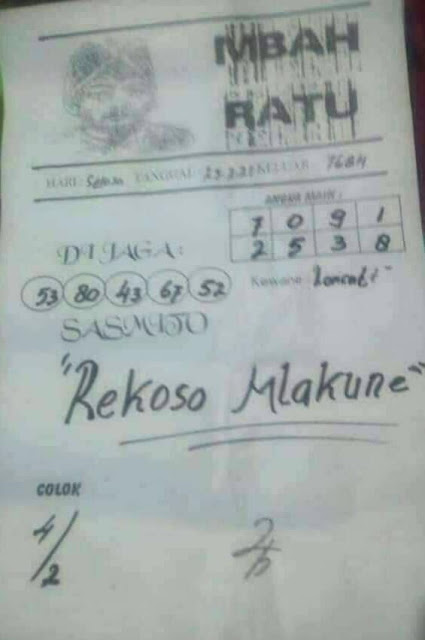 MBAH
RATU
HARI: Selasa TANGGAL KELUAR 7684
ANGKA MAIN :
7 0 9 1
2 5 3 8
DI JAGA:
53 80 43 67 52
Kewane
SASMITO
"Rekoso Mlakune"
COLOK
4/2